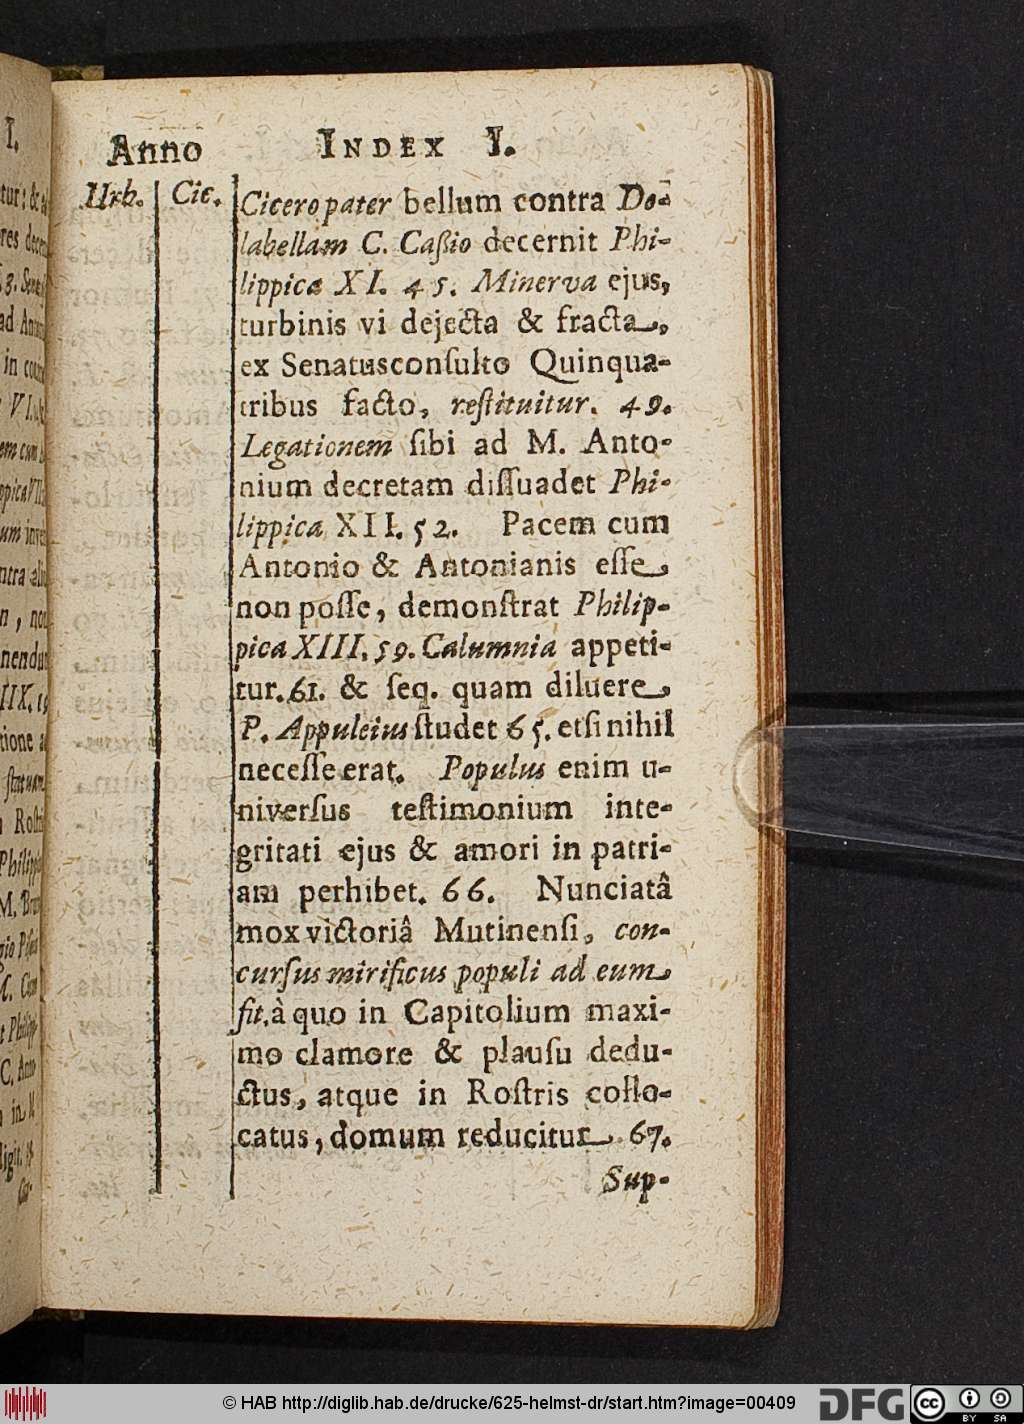 Anno INDEX I.
Urb. Cic.
Cicero pater bellum contra Do-
labellam C. Caſſio decernit Phi-
lippica XI. 45. Minerva ejus,
turbinis vi dejecta & fracta,
ex Senatusconſulto Quinqua-
tribus facto, reſtituitur. 49.
Legationem ſibi ad M. Anto-
nium decretam diſſuadet Phi-
lippica XII. 52. Pacem cum
Antonio & Antonianis eſſe
non poſſe, demonſtrat Philip-
pica XIII. 59. Calumnia appeti-
tur. 61. & ſeq. quam diluere
P. Appuleius ſtudet 65. etſi nihil
neceſſe erat. Populus enim u-
niverſus teſtimonium inte-
gritati ejus & amori in patri-
am perhibet. 66. Nunciatâ
mox victoriâ Mutinenſi, con-
curſus mirificus populi ad eum
fit, à quo in Capitolium maxi-
mo clamore & plauſu dedu-
ctus, atque in Roſtris collo-
catus, domum reducitur 67.
Sup-
I.
ad
in
VI.
© HAB http://diglib.hab.de/drucke/625-helmst-dr/start.htm?image=00409
DFG
cc
BY SA